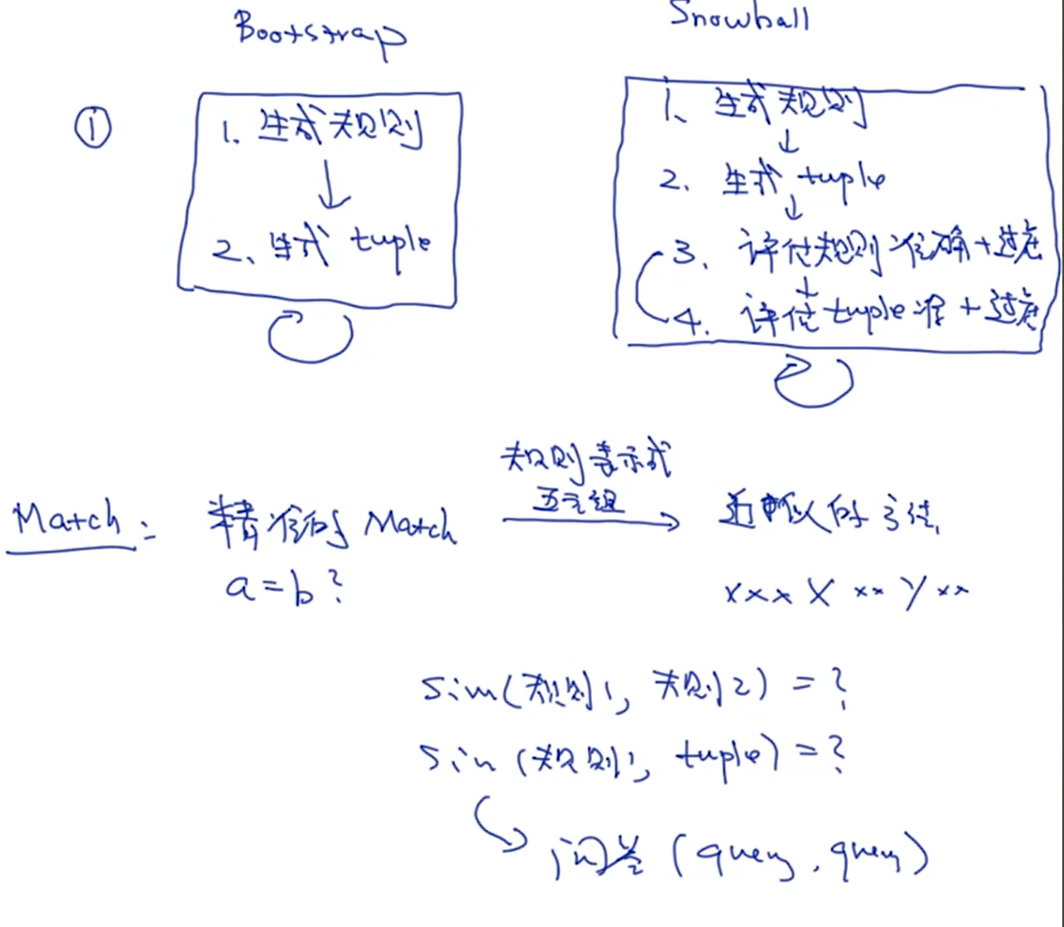 Bootstrap
Snowball
①
1. 生成规则
↓
2. 生成 tuple
1. 生成规则
↓
2. 生成 tuple
↓
3. 评估规则准确+过滤
↓
4. 评估 tuple 准+过滤
Match: 精准的 Match
a=b?
规则表示成
五元组
近似的方法
xxx X xx Y xx
sim(规则1, 规则2) = ?
sim(规则1, tuple) = ?
问答 (query, query)